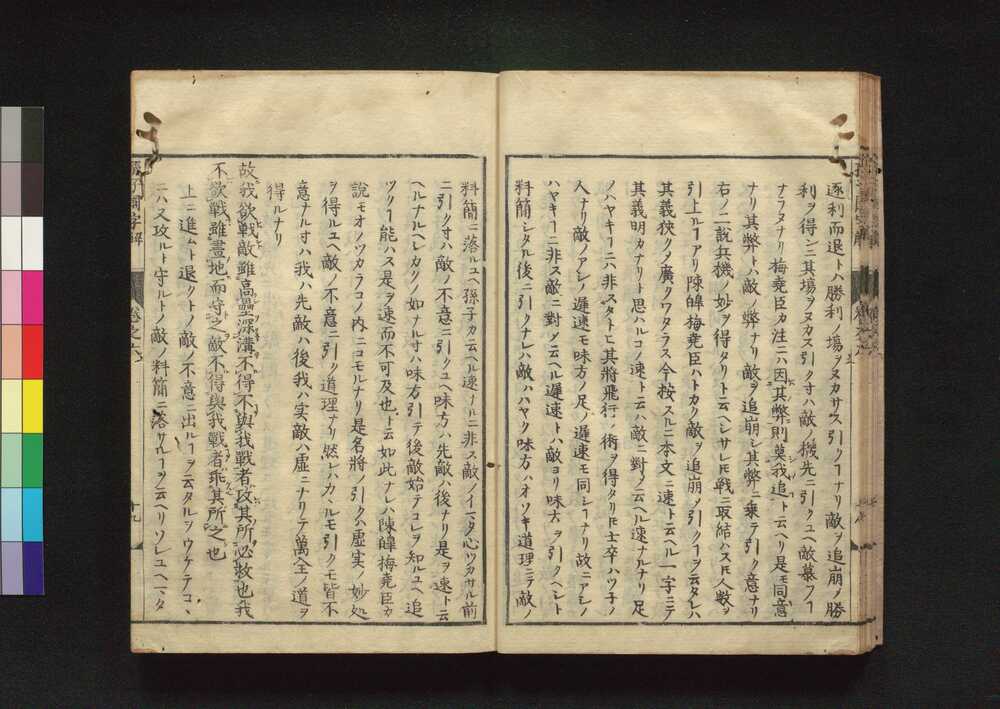 逐利而退ト八勝利ノ場ヲヌカサズ引クヿナリ敵ヲ追崩ノ勝
利ヲ得ン二其場ヲヌカス引クオハ敵ノ機先二引クユヘ敵慕フヿ
ナラヌナリ梅堯臣カ注ニハ因其弊則莫我追ト云ヘリ是モ同意
ナリ其弊トハ敵ノ弊ナリ敵ヲ追崩シ其弊ニ乗テ引ク意ナリ
右ノ二説兵機ノ妙ヲ得タリト云ヘシサレ𪜈戦ニ取結ハス𪜈人数ヲ
引上ルヿアリ陳皥梅堯臣ハトカク敵ヲ追崩ノ引クヿヲ云タレハ
其義狭クノ廣クワタラス今按スルニ本文ニ速ト云ヘル一字ニテ
其義明カナリト思ハルコノ速ト云ハ敵ニ對ノ云ヘル速ナルナリ足
ノハヤキヿニハ非スタトヒ其將飛行ノ術ヲ得タリ𪜈士卒ハツ子ノ
人ナリ敵ノアシノ遲速モ味方ノ足ノ遲速モ同シヿナリ故ニアシノ
ハヤキヿニ非ス敵ニ對ノ云ヘル遲速トハ敵ヨリ味方ヲ引クヘシト
料簡シタル後ニ引クナレハ敵ハハヤク味方ハオソキ道理ニテ敵ノ
料簡ニ落ルユヘ孫子カ云ヘル速ナルニ非ス敵ノイマタ心ツカサル前
ニ引ク寸ハ敵ノ不意ニ引クユヘ味方ハ先敵ハ後ナリ是ヲ速ト云
ヘルナルヘシカクノ如ナル寸ハ味方引テ後敵始テコレヲ知ルユヘ追
ツクヿ能ハス是ヲ速而不可及也ト云如此ナレハ陳皥梅堯臣カ
說モオノツカラコノ内ニコモルナリ是名將ノ引クハ虚実ノ妙処
ヲ得ルユヘ敵ノ不意ニ引ク道理ナリ然レハカヽルモ引クモ皆不
意ナル寸ハ我ハ先敵ハ後我ハ実敵ハ虚ニナリテ萬全ノ道ヲ
得ルナリ
故我欲戰敵雖高壘深溝不得不與我戰者攻其所必救也我
不欲戰雖畫地而守之敵不得與我戰者乖其所之也
上ニ進ムト退クトノ敵ノ不意ニ出ルヿヲ云タルヲウケテコヽ
ニハ又攻ルト守ルトノ敵ノ料簡ニ落サルヿヲ云ヘリソレユヘニマタ
孫子國字解
卷之六
十九